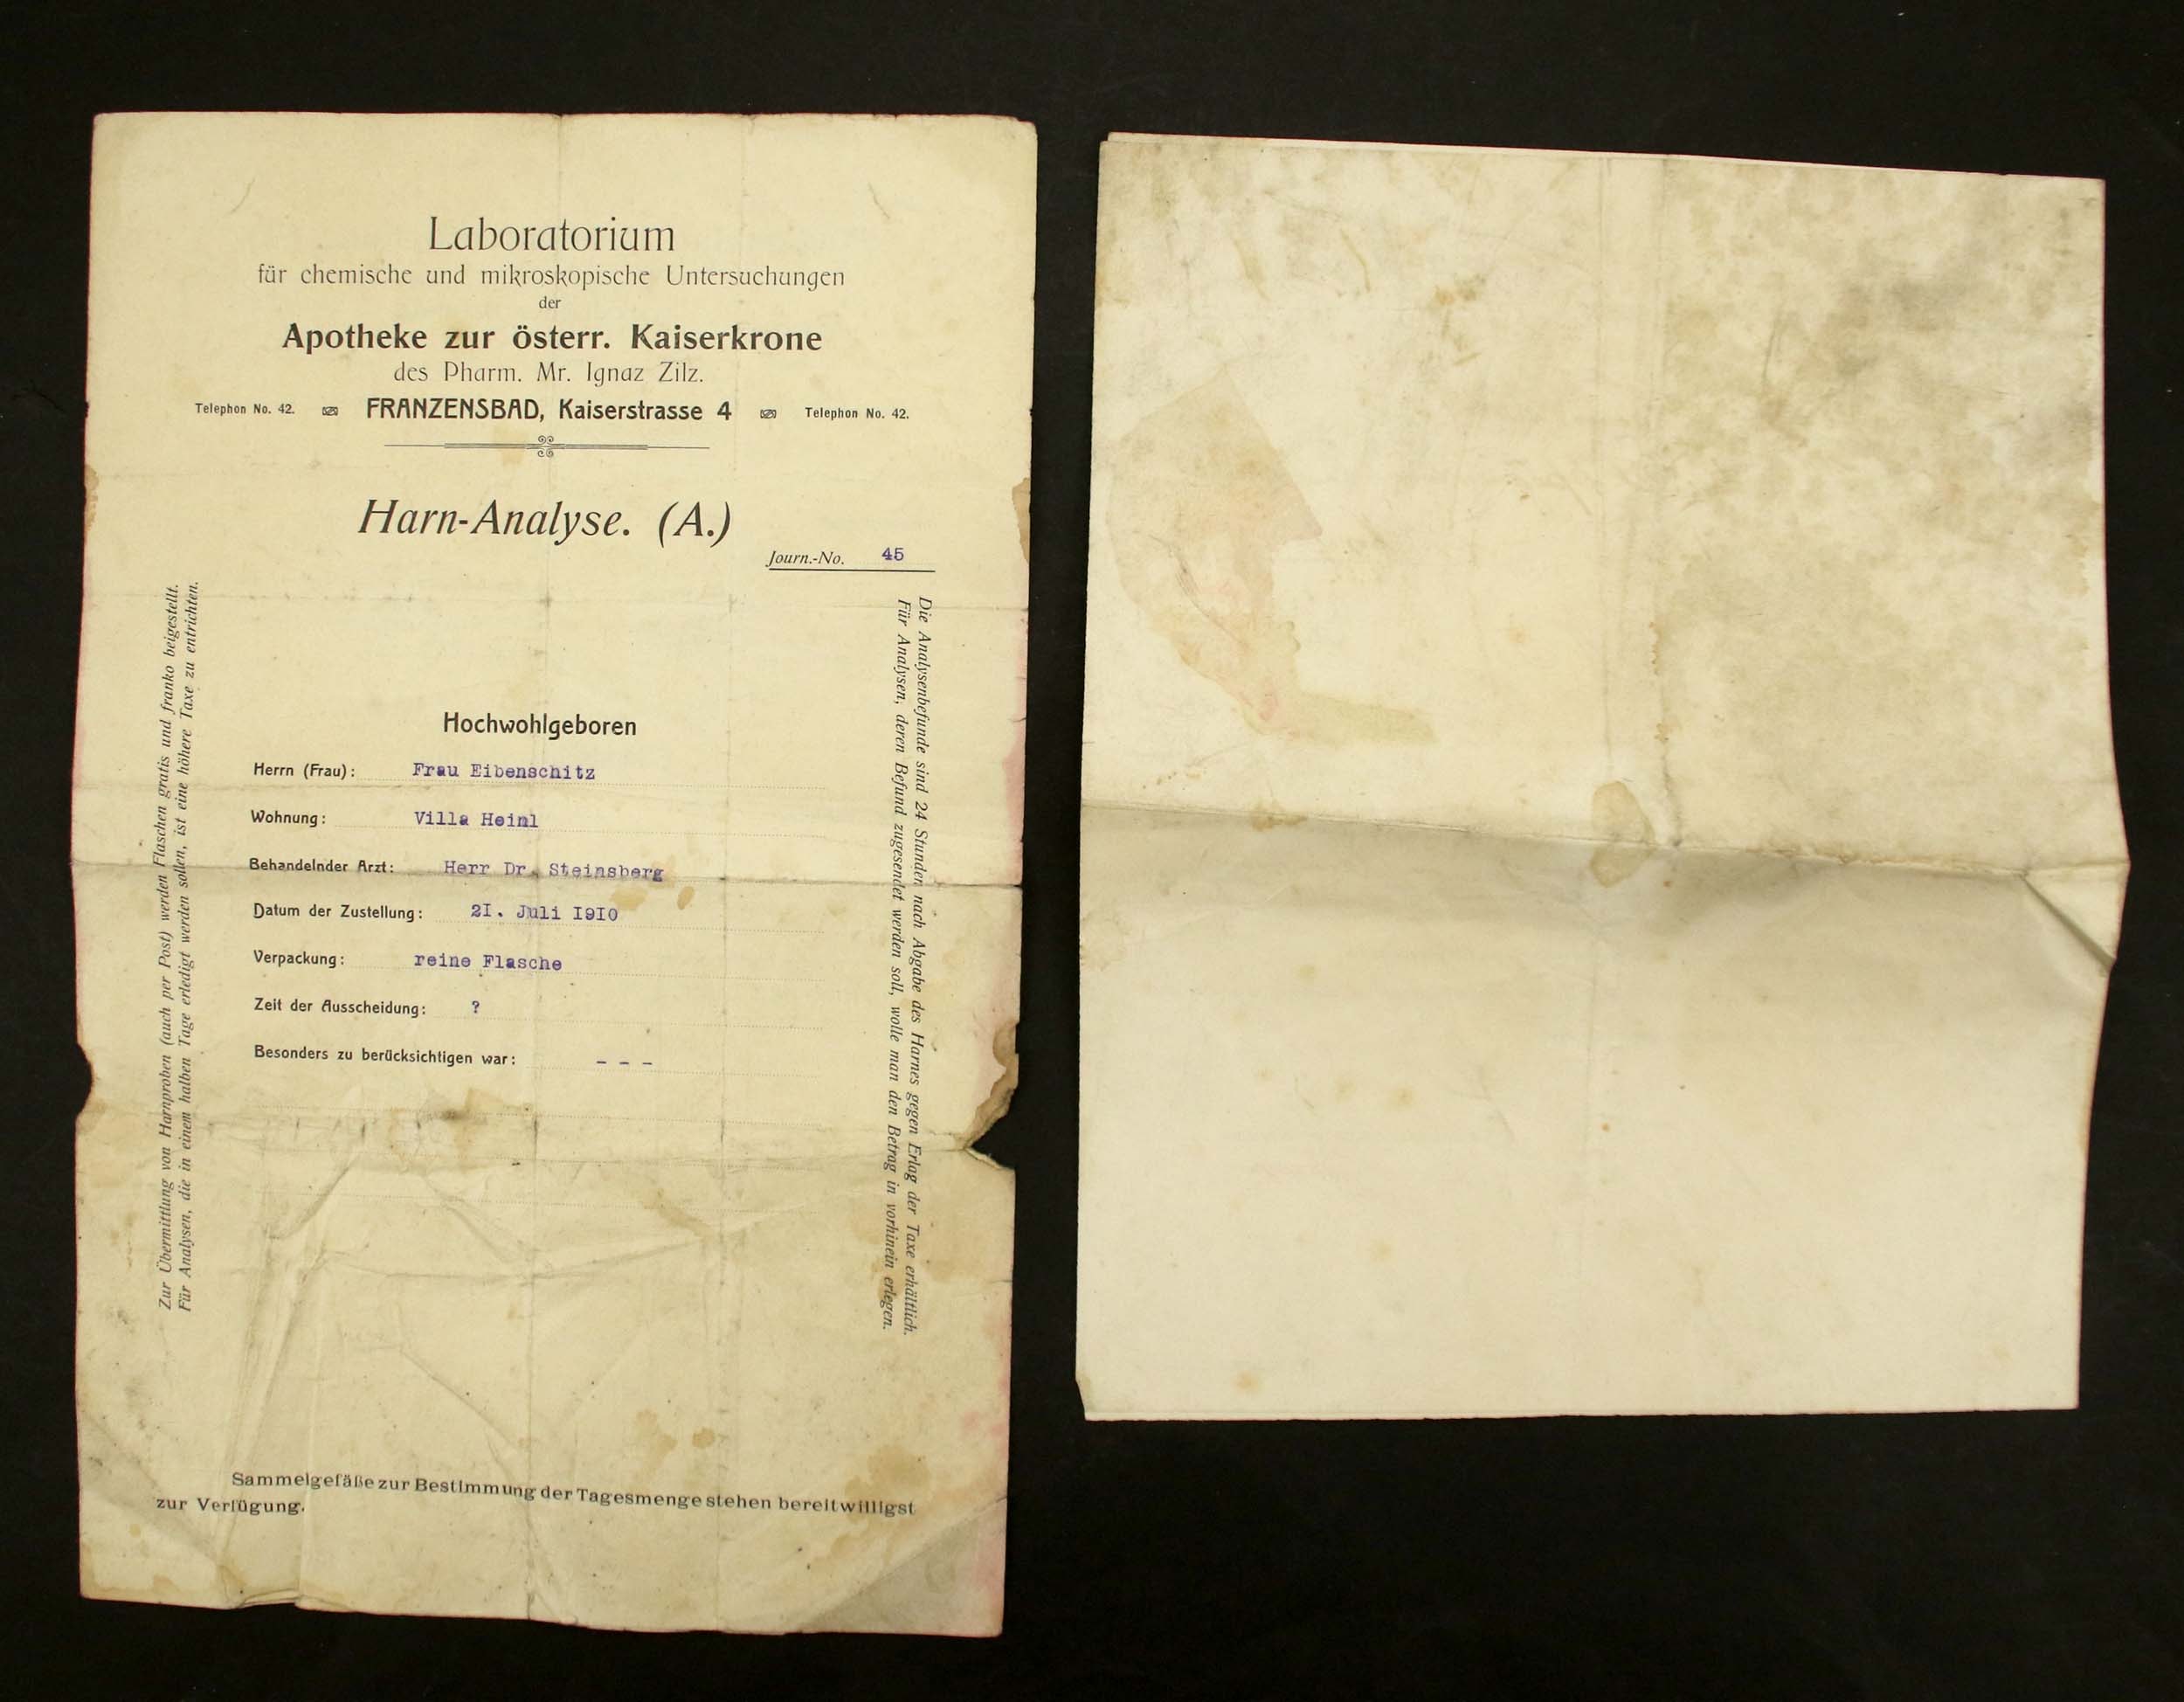 Laboratorium
für chemische und mikroskopische Untersuchungen
der
Apotheke zur österr. Kaiserkrone
des Pharm. Mr. Ignaz Zilz.
Telephon No. 42. FRANZENSBAD, Kaiserstrasse 4 Telephon No. 42.
Harn-Analyse. (A.)
Journ.-No. 45
Hochwohlgeboren
Herrn (Frau): Frau Eibenschitz
Wohnung: Villa Heinl
Behandelnder Arzt: Herr Dr. Steinsberg
Datum der Zustellung: 2I. Juli I9I0
Verpackung: reine Flasche
Zeit der Ausscheidung: ?
Besonders zu berücksichtigen war: - - -
Zur Übermittlung von Harnproben (auch per Post) werden Flaschen gratis und franko beigestellt.
Für Analysen, die in einem halben Tage erledigt werden sollen, ist eine höhere Taxe zu entrichten.
Die Analysenbefunde sind 24 Stunden nach Abgabe des Harnes gegen Erlag der Taxe erhältlich.
Für Analysen, deren Befund zugesendet werden soll, wolle man den Betrag in vorhinein erlegen.
Sammelgefäße zur Bestimmung der Tagesmenge stehen bereitwilligst
zur Verfügung.